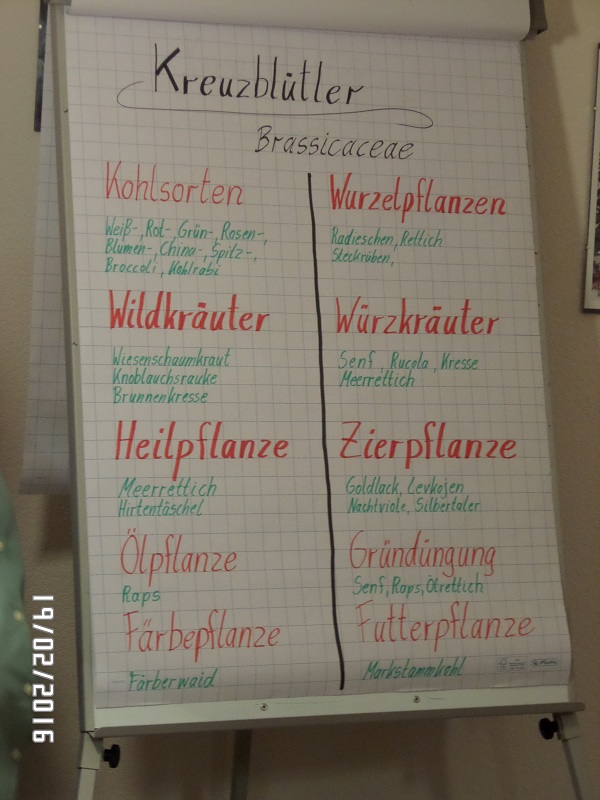 Kreuzblütler
Brassicaceae
Kohlsorten
Weiß-, Rot-, Grün-, Rosen-,
Blumen-, China-, Spitz-,
Broccoli, Kohlrabi
Wurzelpflanzen
Radieschen, Rettich
Steckrüben,
Wildkräuter
Wiesenschaumkraut
Knoblauchsrauke
Brunnenkresse
Würzkräuter
Senf, Rucola, Kresse
Meerrettich
Heilpflanze
Meerrettich
Hirtentäschel
Zierpflanze
Goldlack, Levkojen
Nachtviole, Silbertaler
Ölpflanze
Raps
Gründüngung
Senf, Raps, Ölrettich
Färbepflanze
Färberwaid
Futterpflanze
Markstammkohl
19/02/2016